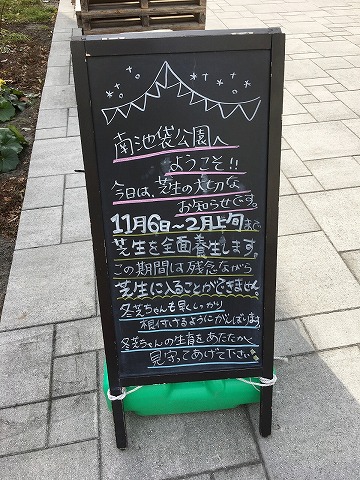 南池袋公園へ
ようこそ!!
今日は、芝生の大切な
お知らせです。
11月6日〜2月上旬まで
芝生を全面養生します。
この期間は残念ながら
芝生に入ることができません。
冬芝ちゃんも早くしっかり
根付けるようにがんばります。
冬芝ちゃんの生育をあたたかく
見守ってあげて下さい